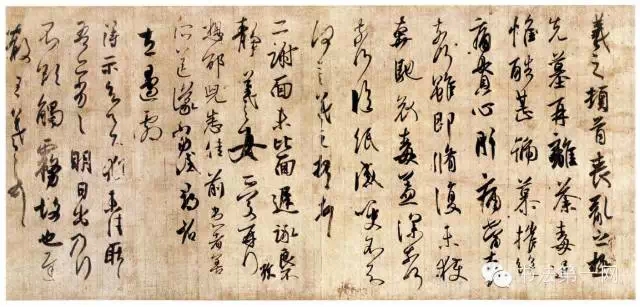 羲之頓首喪亂之極
先墓再離荼毒追
惟酷甚號慕摧絕
痛貫心肝痛當奈何
奈何雖即脩復未獲
奔馳哀毒益深奈何
奈何臨紙感哽不知
何言羲之頓首頓首
二謝面未比面遲詠良不
靜羲之女愛再拜
想邵兒悉佳前患者善
所送議當試尋省
左邊劇
得示知足下猶未佳耿耿
吾亦劣劣明日出乃行
不欲觸霧故也遲
散王羲之頓首
书法第一网